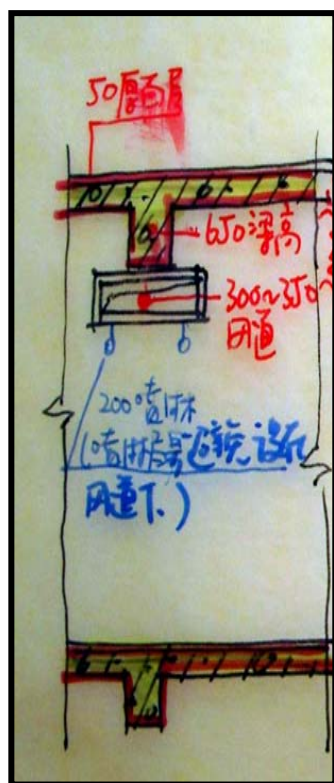 50厚面层
650梁高
300~350
风道
200喷淋
(喷淋尽量避免设在
风道下.)